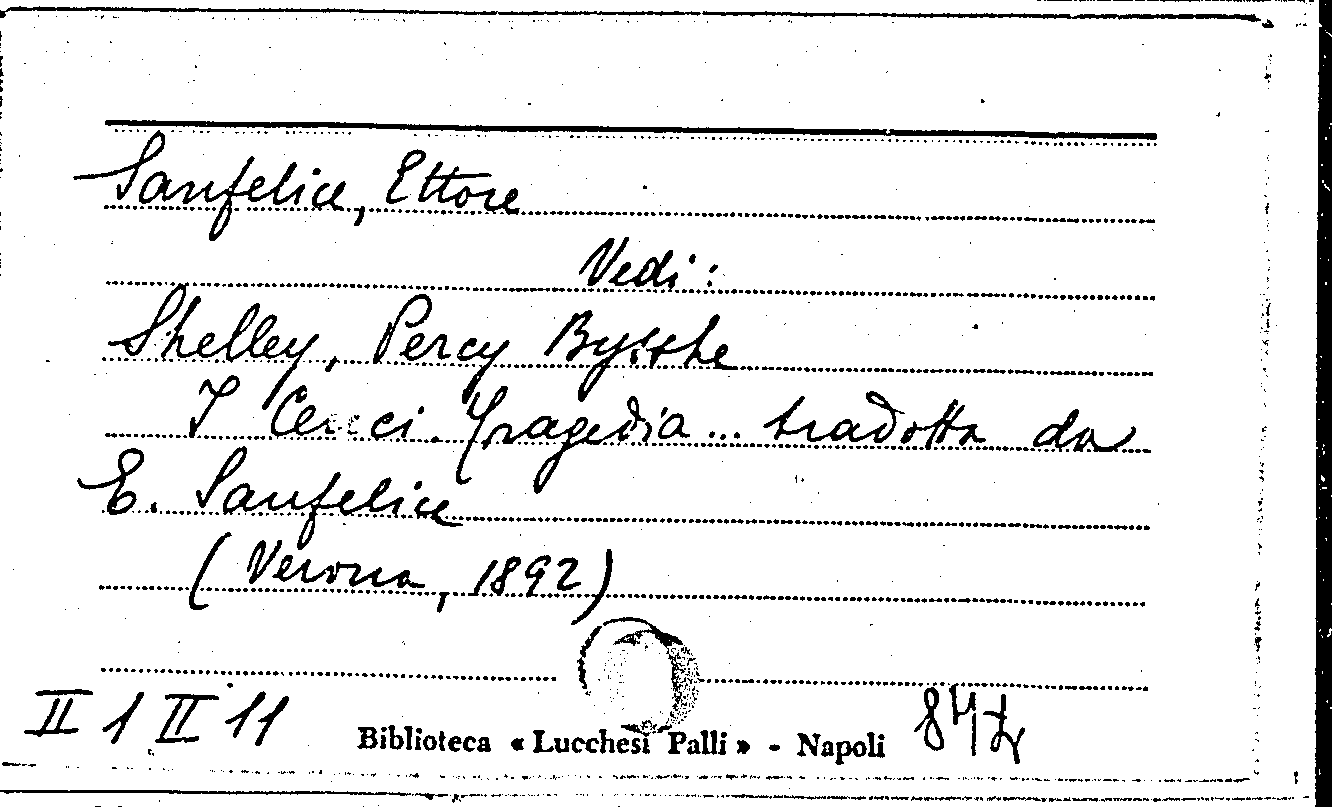 Sanfelice, Ettore
Vedi:
Shelley, Percy Bysshe
I Cenci. Tragedia... tradotta da
E. Sanfelice
(Verona, 1892)
II 1 II 11
Biblioteca « Lucchesi Palli » - Napoli